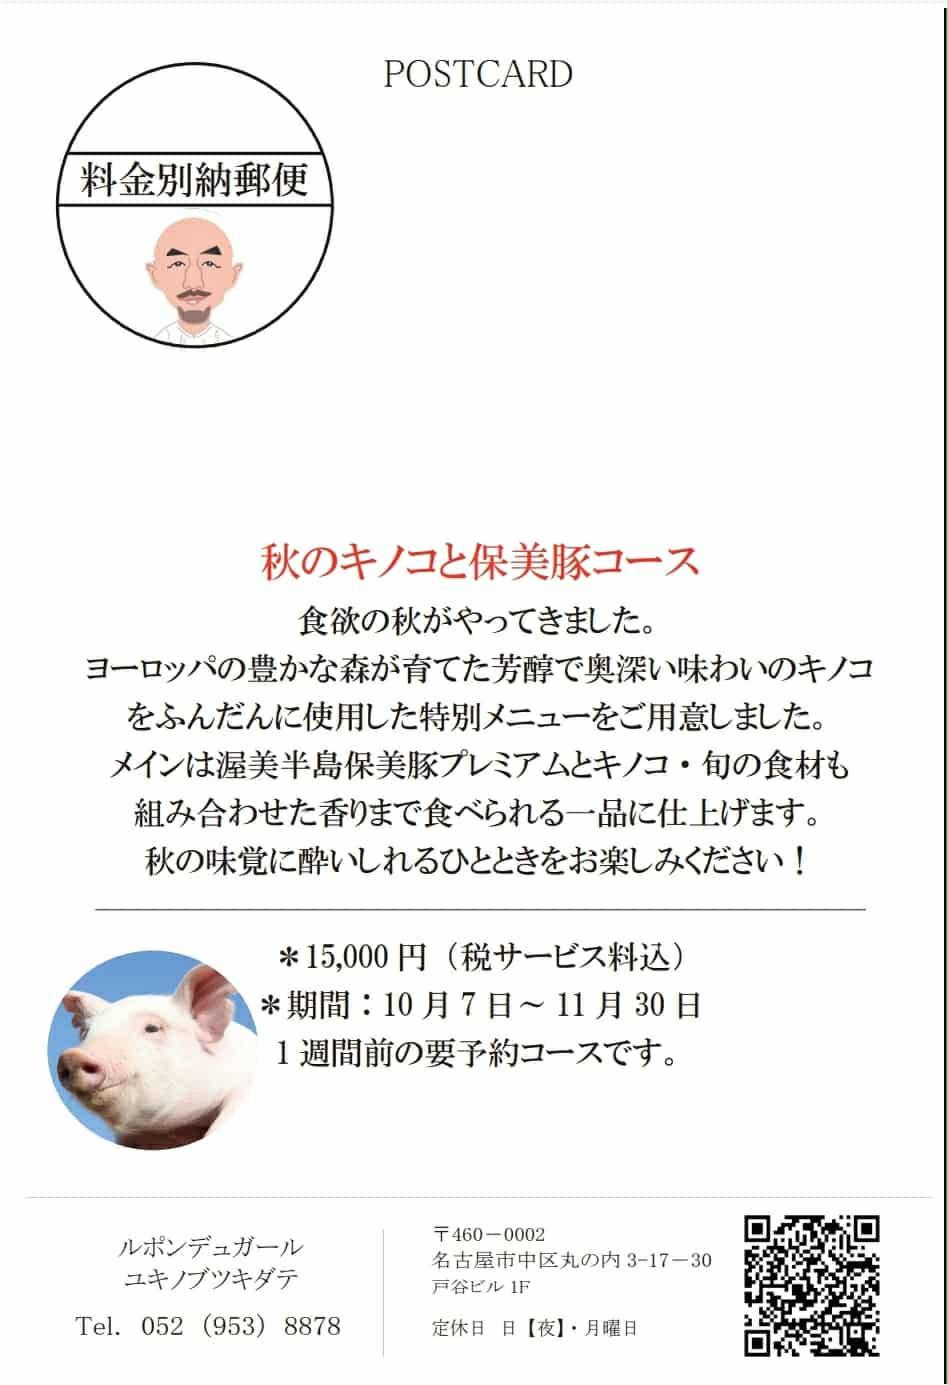 POSTCARD
料金別納郵便
秋のキノコと保美豚コース
食欲の秋がやってきました。
ヨーロッパの豊かな森が育てた芳醇で奥深い味わいのキノコ
をふんだんに使用した特別メニューをご用意しました。
メインは渥美半島保美豚プレミアムとキノコ・旬の食材も
組み合わせた香りまで食べられる一品に仕上げます。
秋の味覚に酔いしれるひとときをお楽しみください！
＊15,000 円（税サービス料込）
＊期間：10 月 7 日～ 11 月 30 日
1 週間前の要予約コースです。
ルポンデュガール
ユキノブツキダテ
Tel. 052（953）8878
〒460－0002
名古屋市中区丸の内 3-17－30
戸谷ビル 1F
定休日 日【夜】・月曜日